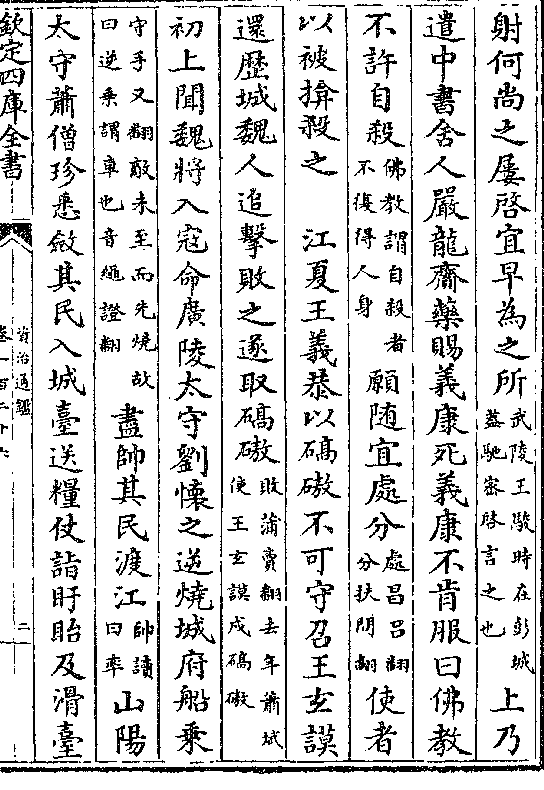 射何尚之屢啓宜早為之所武陵王駿時在彭城蓋馳密啓言之也上乃
遣中書舍人嚴龍齎藥賜義康死義康不肯服曰佛教
不許自殺佛教謂自殺者不復得人身願隨宜處分處昌呂翻分扶問翻使者
以被揜殺之　江夏王義恭以碻磝不可守召王玄謨
還歷城魏人追擊敗之遂取碻磝敗蒲賣翻去年蕭斌使王玄謨戍碻磝
初上聞魏將入寇命廣陵太守劉懷之逆燒城府船乘
守手又翻敵未至而先燒故曰逆乘謂車也音繩證翻盡帥其民渡江帥讀曰率山陽
太守蕭僧珍悉斂其民入城臺送糧仗詣盱眙及滑臺
欽定四庫全書
資治通鑑
卷一百二十六
二